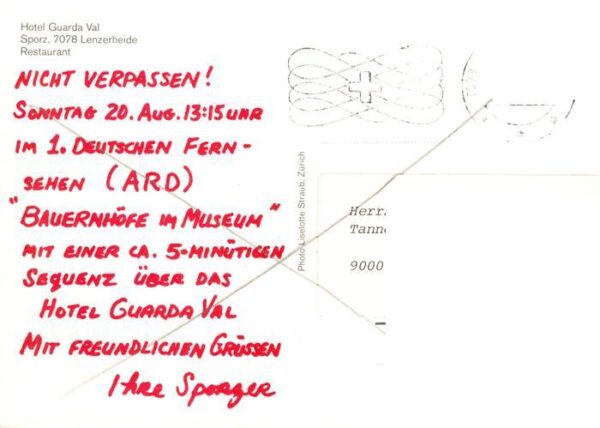 Hotel Guarda Val
Sporz, 7078 Lenzerheide
Restaurant
NICHT VERPASSEN!
SONNTAG 20. AUG. 13:15 UHR
IM 1. DEUTSCHEN FERN-
SEHEN (ARD)
"BAUERNHÖFE IM MUSEUM"
MIT EINER CA. 5-MINÜTIGEN
SEQUENZ ÜBER DAS
HOTEL GUARDA VAL
MIT FREUNDLICHEN GRÜSSEN
Ihre Sporzer
Photo Liselotte Straub, Zürich
Herr
Tanne
9000